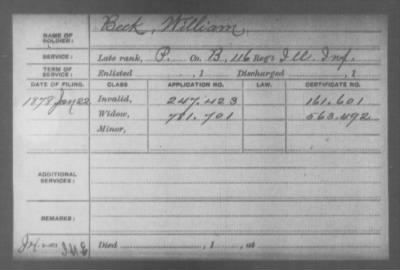 NAME OF SOLDIER: Beck, William
SERVICE: Late rank, P. Co. B, 116 Reg't Ill. Inf.
TERM OF SERVICE: Enlisted , 1 Discharged , 1
DATE OF FILING. CLASS APPLICATION NO. LAW. CERTIFICATE NO.
1878 Jan 22 Invalid, 247.423 161.601
Widow, 781.701 563.492
Minor,
ADDITIONAL SERVICES:
REMARKS:
Died , 1 , at